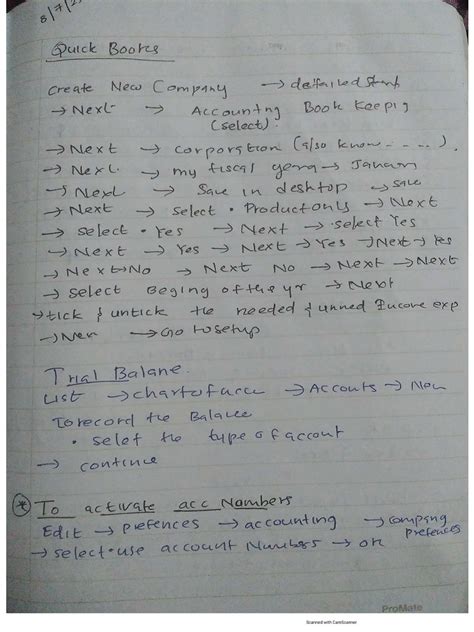 8/7/2
Quick Books
Create New Company → detailed start
→ Next → Accounting Book Keepig
(select)
→ Next → corporation (also know - - - -).
→ Next → my fiscal → Januarn
→ Next → Save in desktop → save
→ Next → select • Product only → Next
→ select • Yes → Next → • select Yes
→ Next → Yes → Next → Yes → Next → Yes
→ Next → No → Next No → Next → Next
→ select Beging of the yr → Next
→ tick & untick the needed & unned Income exp
→ → Go to setup
Trial Balane.
List → chart of acc → Accouts → New
To record the Balance
• selet the type of accout
→ continue
* To activate acc Numbers
Edit → prefences → accounting → compsny prefences
→ select • use account Numbers → ok
ProMate
Scanned with CamScanner